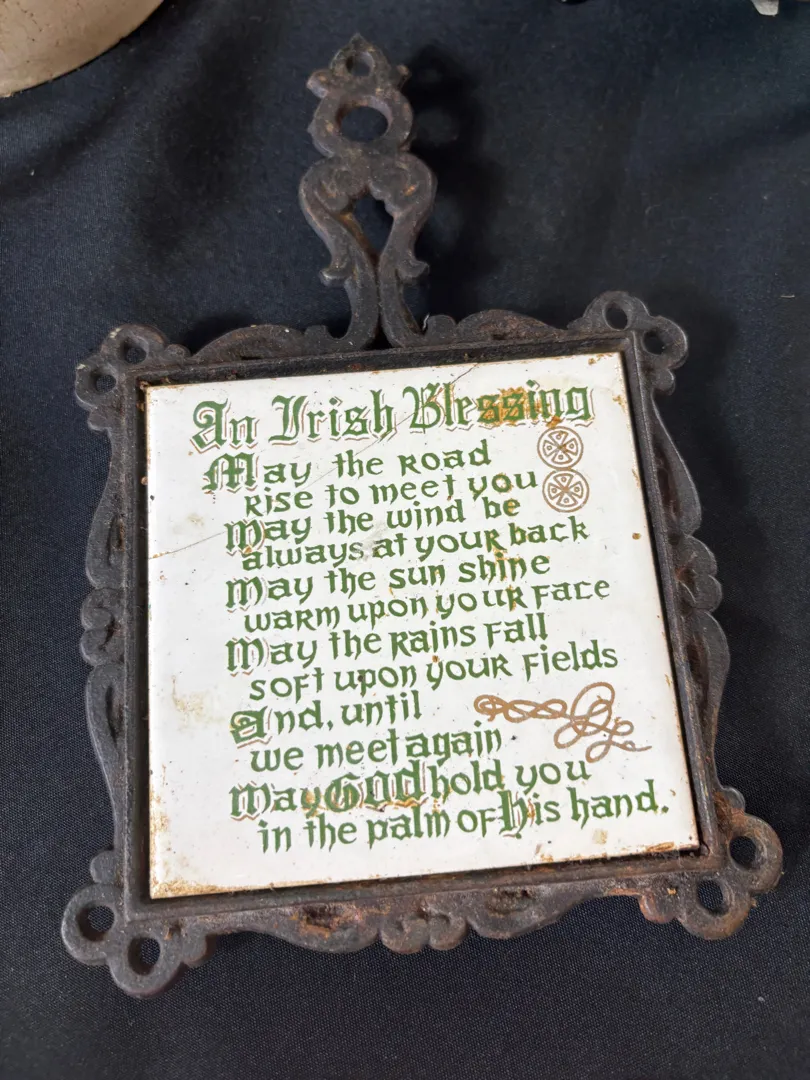 An Irish Blessing
May the road
rise to meet you
May the wind be
always at your back
May the sun shine
warm upon your face
May the rains fall
soft upon your fields
And, until
we meet again
May GOD hold you
in the palm of His hand.